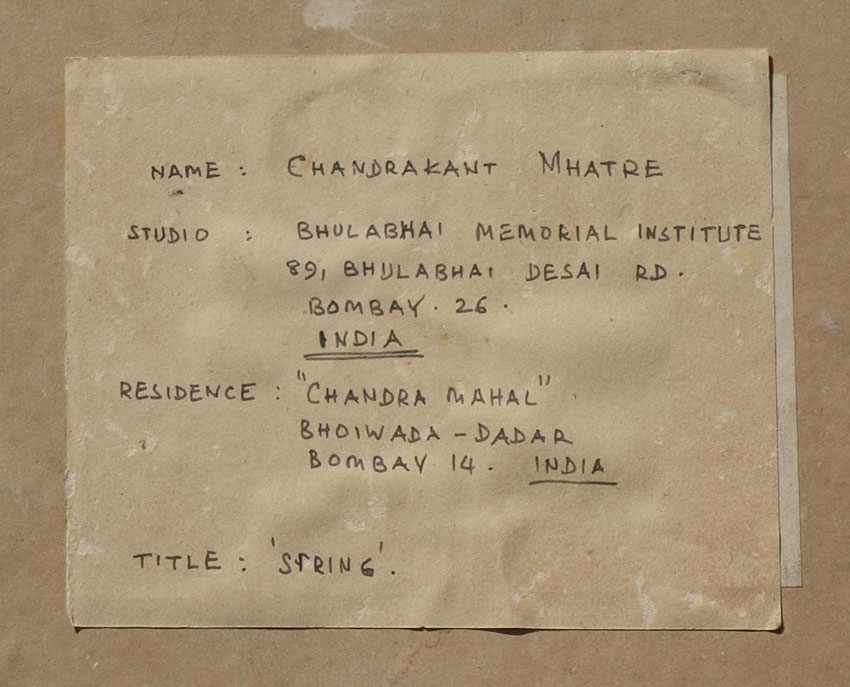 NAME : CHANDRAKANT MHATRE
STUDIO : BHULABHAI MEMORIAL INSTITUTE
89, BHULABHAI DESAI RD.
BOMBAY. 26.
INDIA
RESIDENCE : "CHANDRA MAHAL"
BHOIWADA - DADAR
BOMBAY 14. INDIA
TITLE : 'STRING'.